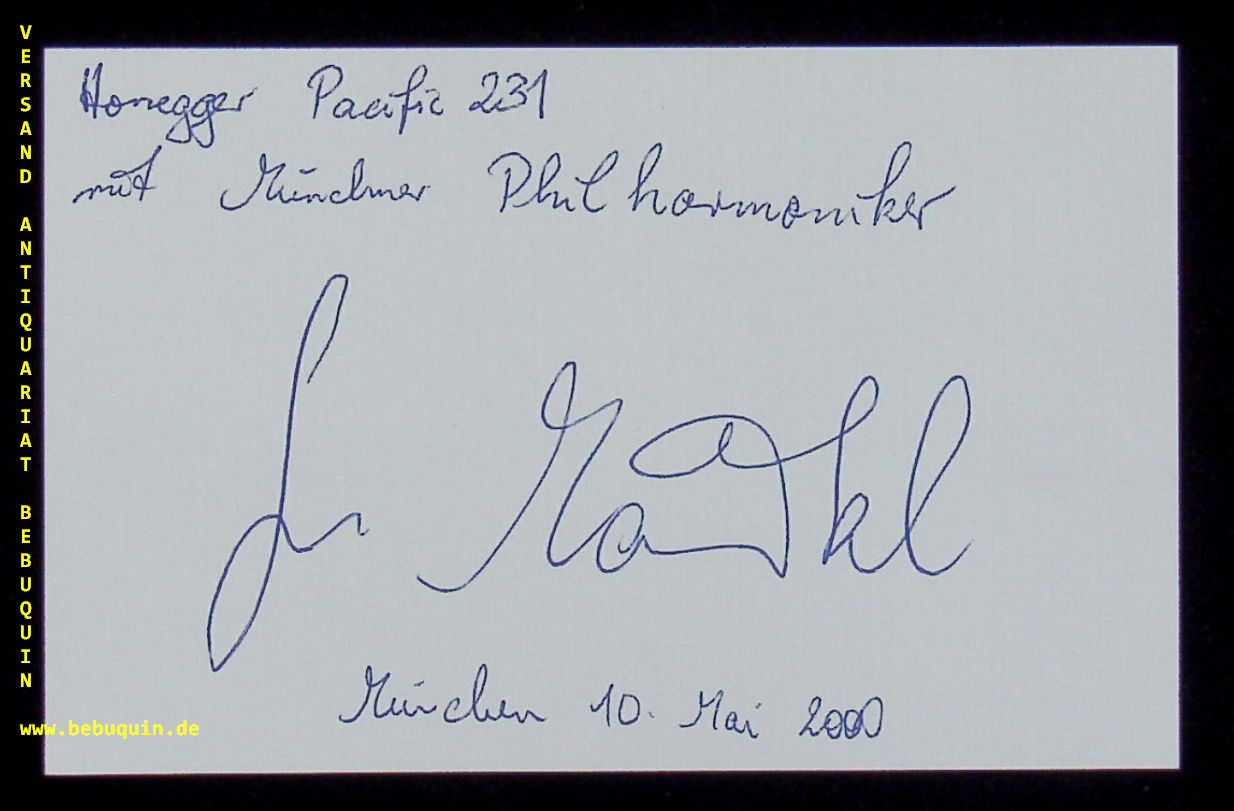 Honegger Pacific 231
mit Münchner Philharmoniker
Jun Märkl
München 10. Mai 2000
VERSAND ANTIQUARIAT BEBUQUIN
www.bebuquin.de